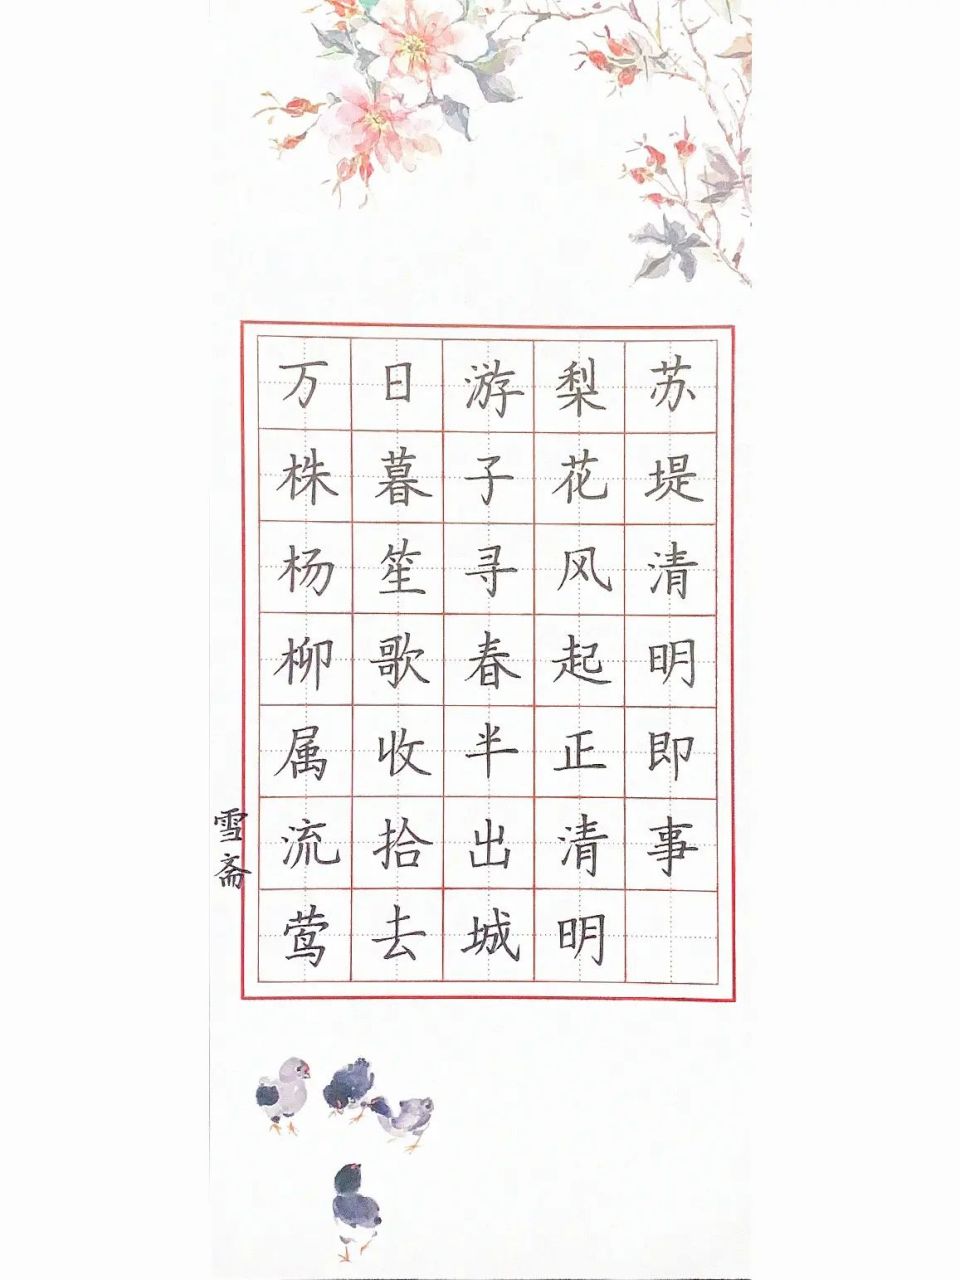 苏堤清明即事
梨花风起正清明
游子寻春半出城
日暮笙歌收拾去
万株杨柳属流莺
雪斋